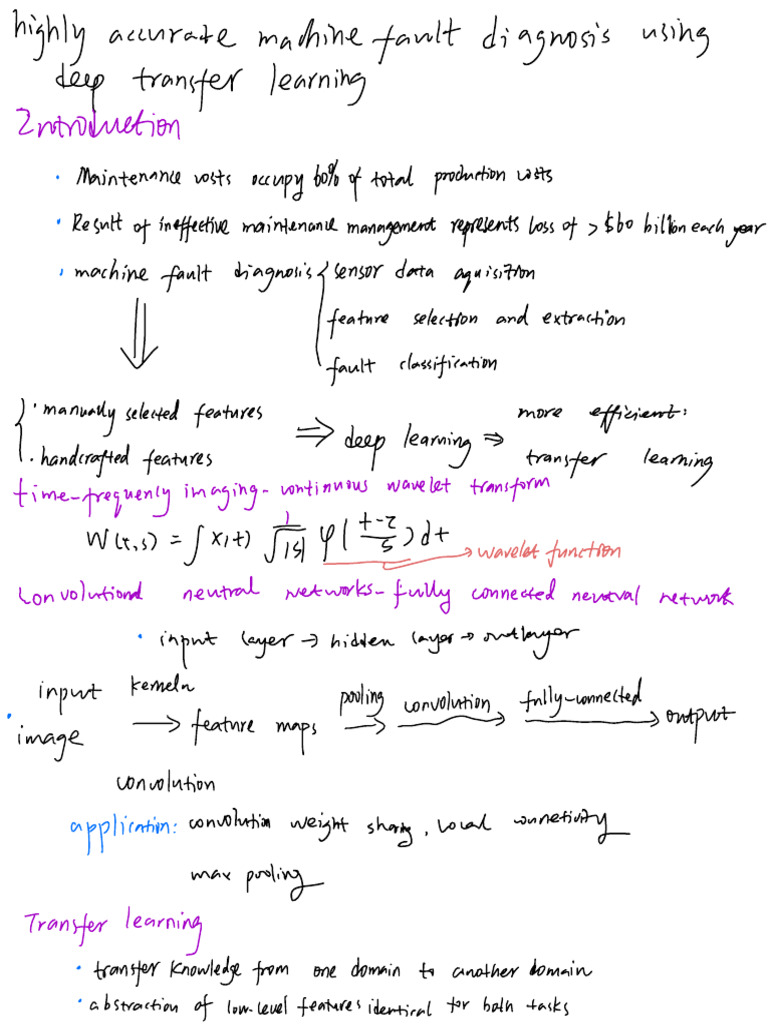 highly accurate machine fault diagnosis using
deep transfer learning
Introduction
· Maintenance costs occupy 60% of total production costs
· Result of ineffective maintenance management represents loss of > $60 billion each year
· machine fault diagnosis { sensor data aquisition
feature selection and extraction
fault classification
{ · manually selected features
· handcrafted features
⇒ deep learning ⇒ more efficient:
transfer learning
time-frequency imaging - continuous wavelet transform
W(τ,s) = ∫ x(t) 1/√|s| φ((t-τ)/s) dt
→ wavelet function
Convolutional neutral networks - fully connected neutral network
· input layer → hidden layer → outlayer
· input image → kerneln convolution → feature maps → pooling → convolution → fully-connected → output
application: convolution weight sharing, local connetivity
max pooling
Transfer learning
· transfer knowledge from one domain to another domain
· abstraction of low-level features identical for both tasks